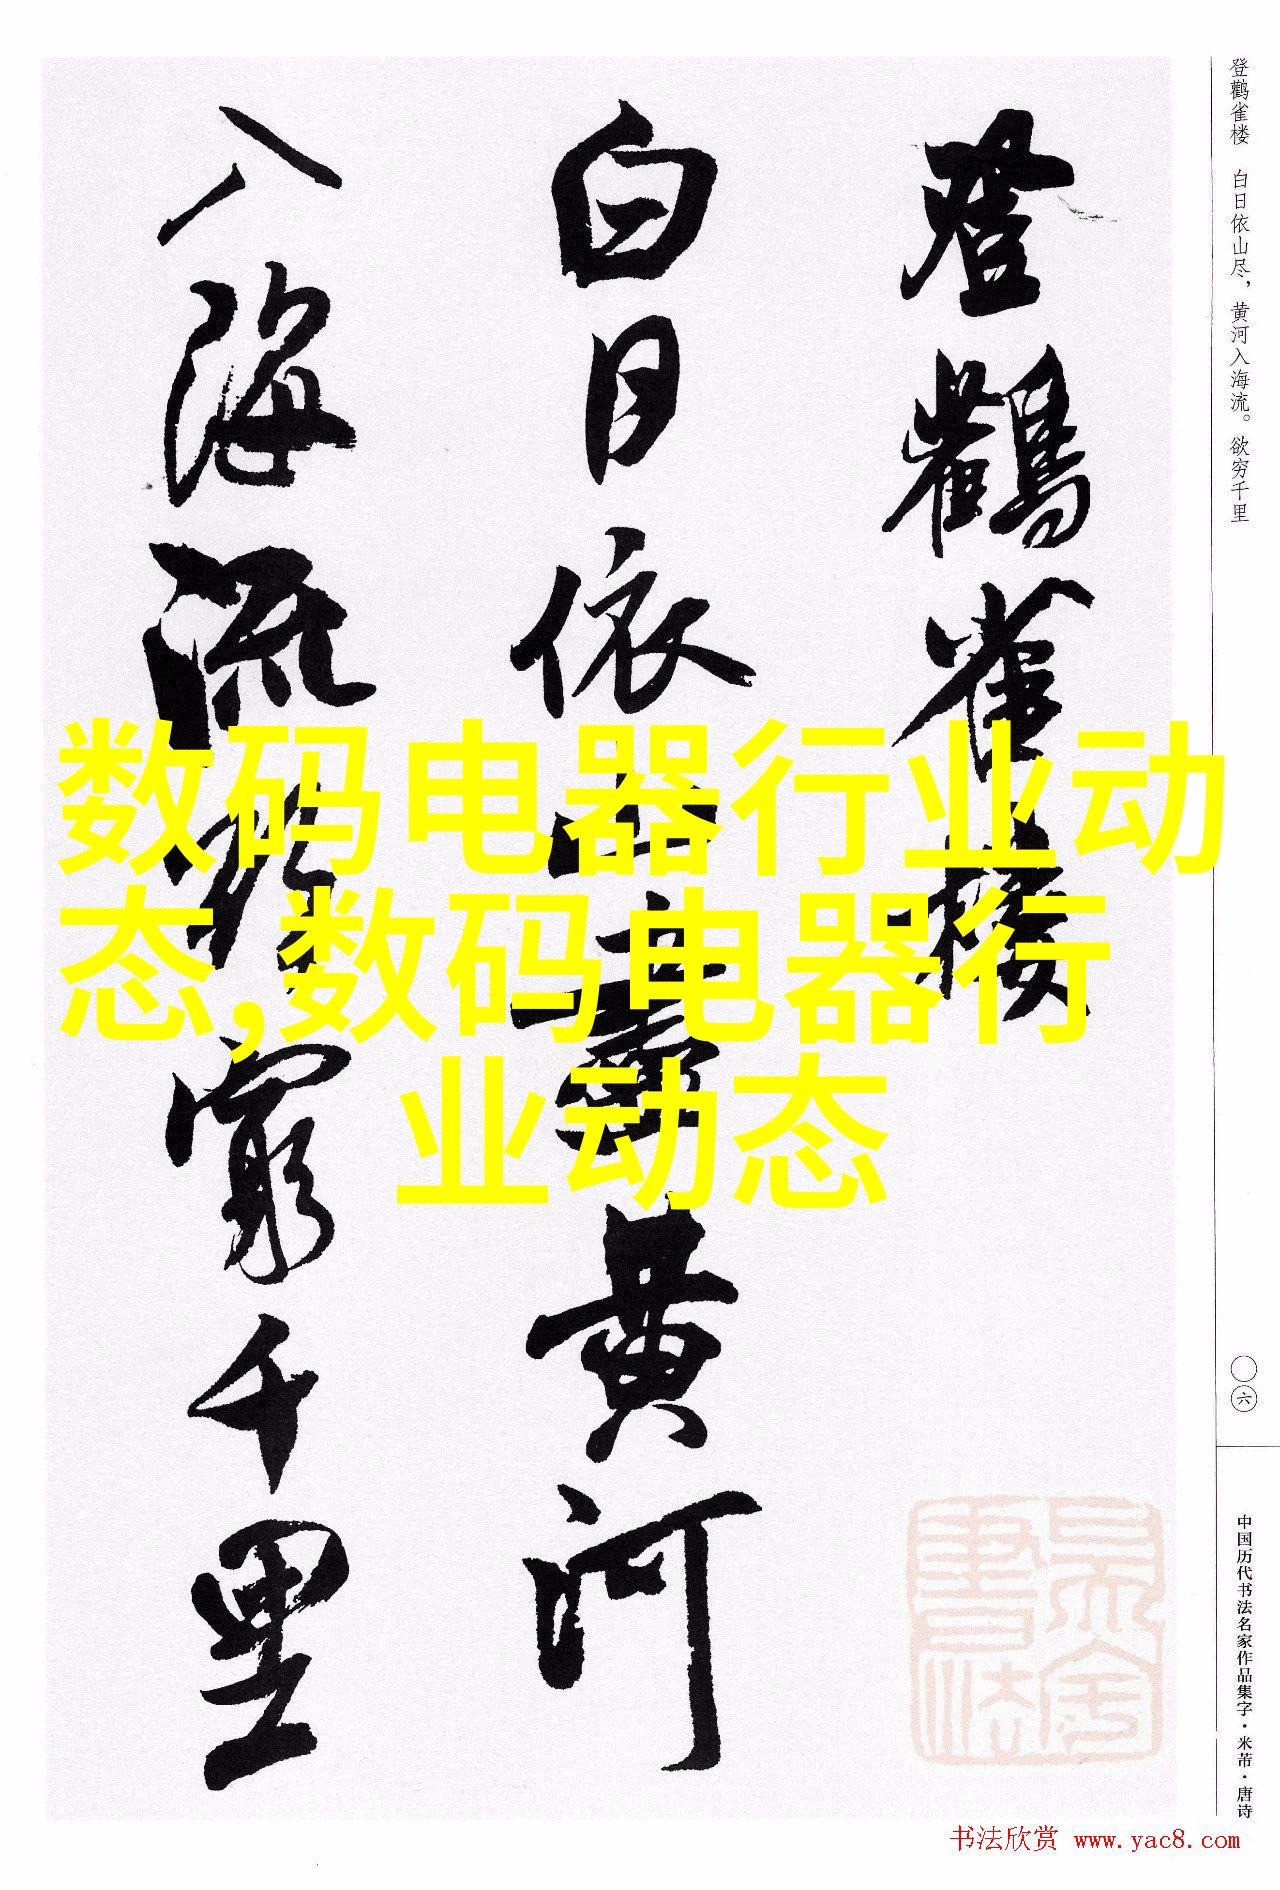 登鸛雀楼
白日依山尽黄河
入海流欲穷千里
登鹳雀楼 白日依山尽，黄河入海流。欲穷千里
数码电器行业动
态,数码电器行
业动态
〇六
中国历代书法名家作品集字·米芾·唐诗
书法欣赏 www.yac8.com